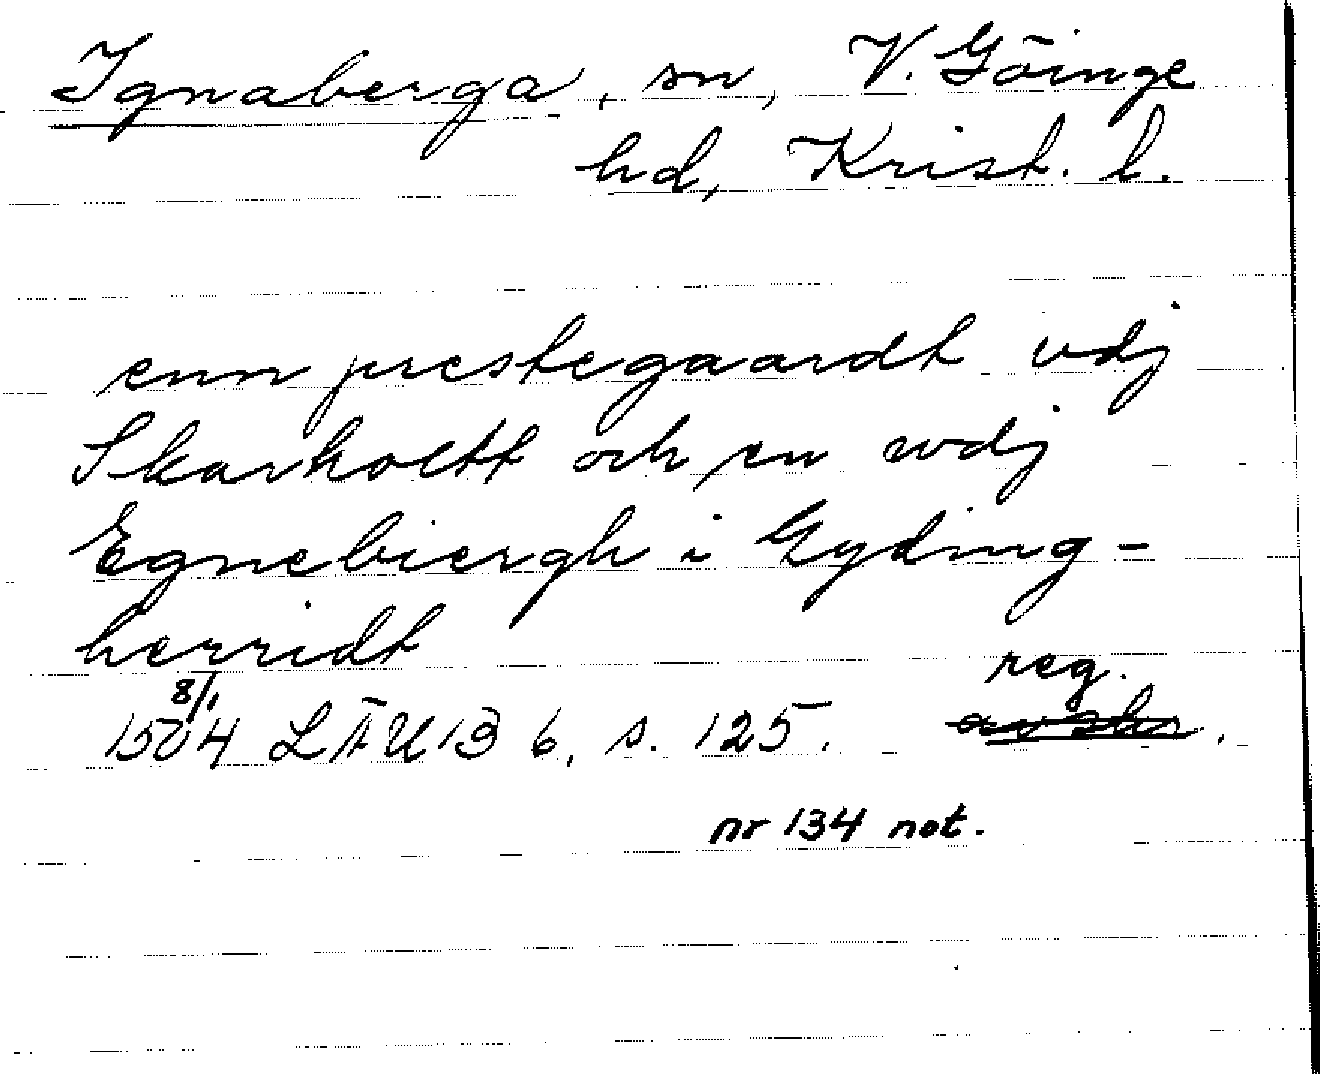 Ignaberga, sn, V. Göinge
hd, Krist. l.
enn prestegaardt vdj
Skarholtt och en wdj
Egnebiergh i Gyding-
herridt
8/1 reg.
1504 LÄU13 6, s. 125. avskr.
nr 134 not.